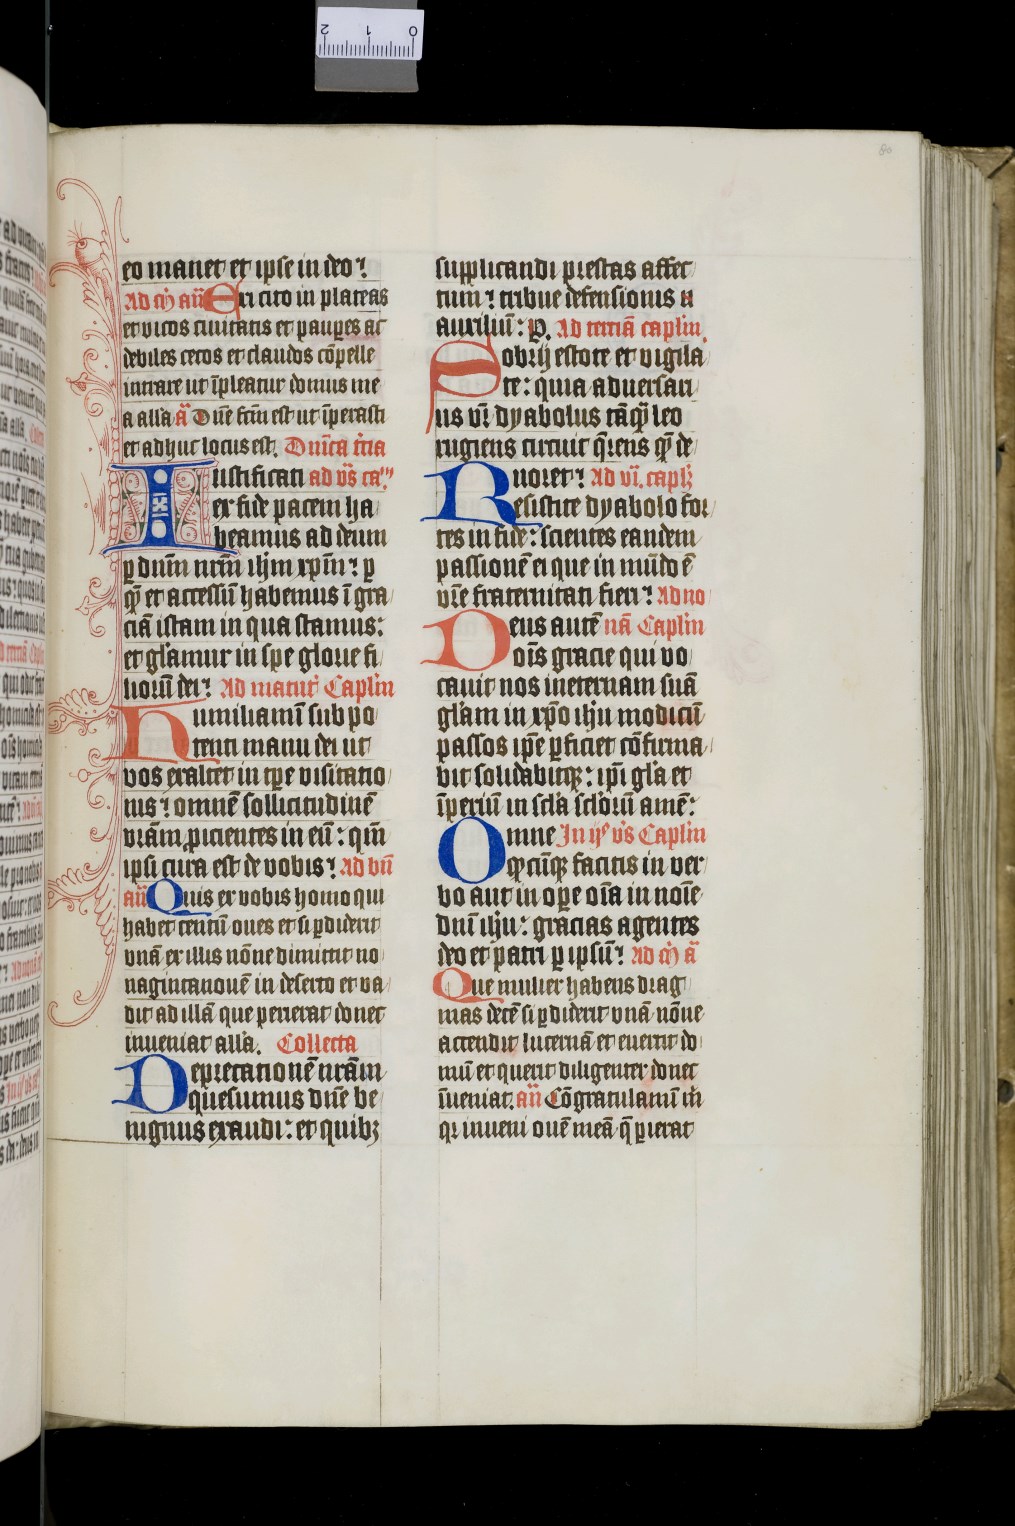 eo manet et ipse in deo
Ad m̄ an̄ Exi cito in plateas
et vicos ciuitatis et paup̲es ac
debiles cecos et claudos cōpelle
intrare ut īpleatur domus me
a alla ā Dūe fcm̄ est ut īperasti
et adhuc locus est. Dn̄ica t̄cia
Iustificati ad vs̄ ca
ex fide pacem ha
beamus ad deum
p̲ dn̄m nrm̄ ihm xpm̄ p̲
quē et accessū habemus ī gra
ciā istam in qua stamus:
et glamur in spe glorie fi
liorū dei Ad matut Caplm
Humiliamī sub po
tenti manu dei ut
vos exaltet in tp̄e visitatio
nis omnē sollicitudinē
vrām picientes in eū: qm̄
ipsi cura est de vobis Ad bn̄
an̄ Quis ex vobis homo qui
habet centū oues et si p̲diderit
vnā ex illis nōne dimittit no
nagintanouē in deserto et va
dit ad illā que perierat donec
inueniat alla. Collecta
Deprecationē nrām
quesumus dn̄e be
nignus exaudi: et quibꝫ
supplicandi prestas affec
tum tribue defensionis
auxiliū: P. Ad terciā caplm
Sobrij estote et vigila
te: quia aduersari
us vr̄ dyabolus tāqꝫ leo
rugiens circuit q̄rens quē de
uoret Ad vi. caplꝫ
Resistite dyabolo for
tes in fide: scientes eandem
passionē ei que in mūdo ē
vre fraternitati fieri Ad no
Deus autē nā Caplm
oīs gracie qui vo
cauit nos in eternam suā
glam in xpo ihu modicū
passos ipe p̲ficiet cōfirma
bit solidabitqꝫ: ipi gla et
īperiū in scla sclorū amē:
Omne In ijs vs̄ Caplm
qcūqꝫ facitis in ver
bo aut in op̲e oīa in noīe
dnī ihu: gracias agentes
deo et patri p̲ ipsū Ad m̄ ā
Que mulier habens drag
mas decē si p̲diderit vnā nōne
accendit lucernā et euerrit do
mū et querit diligenter donec
īueniat. an̄ Cōgratulamī m̄
qr inueni ouē meā q̄ p̲ierat